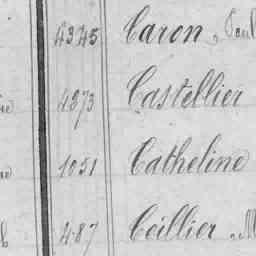 4345 Caron, Paul
4873 Castellier
1051 Catheline
487 Ceillier